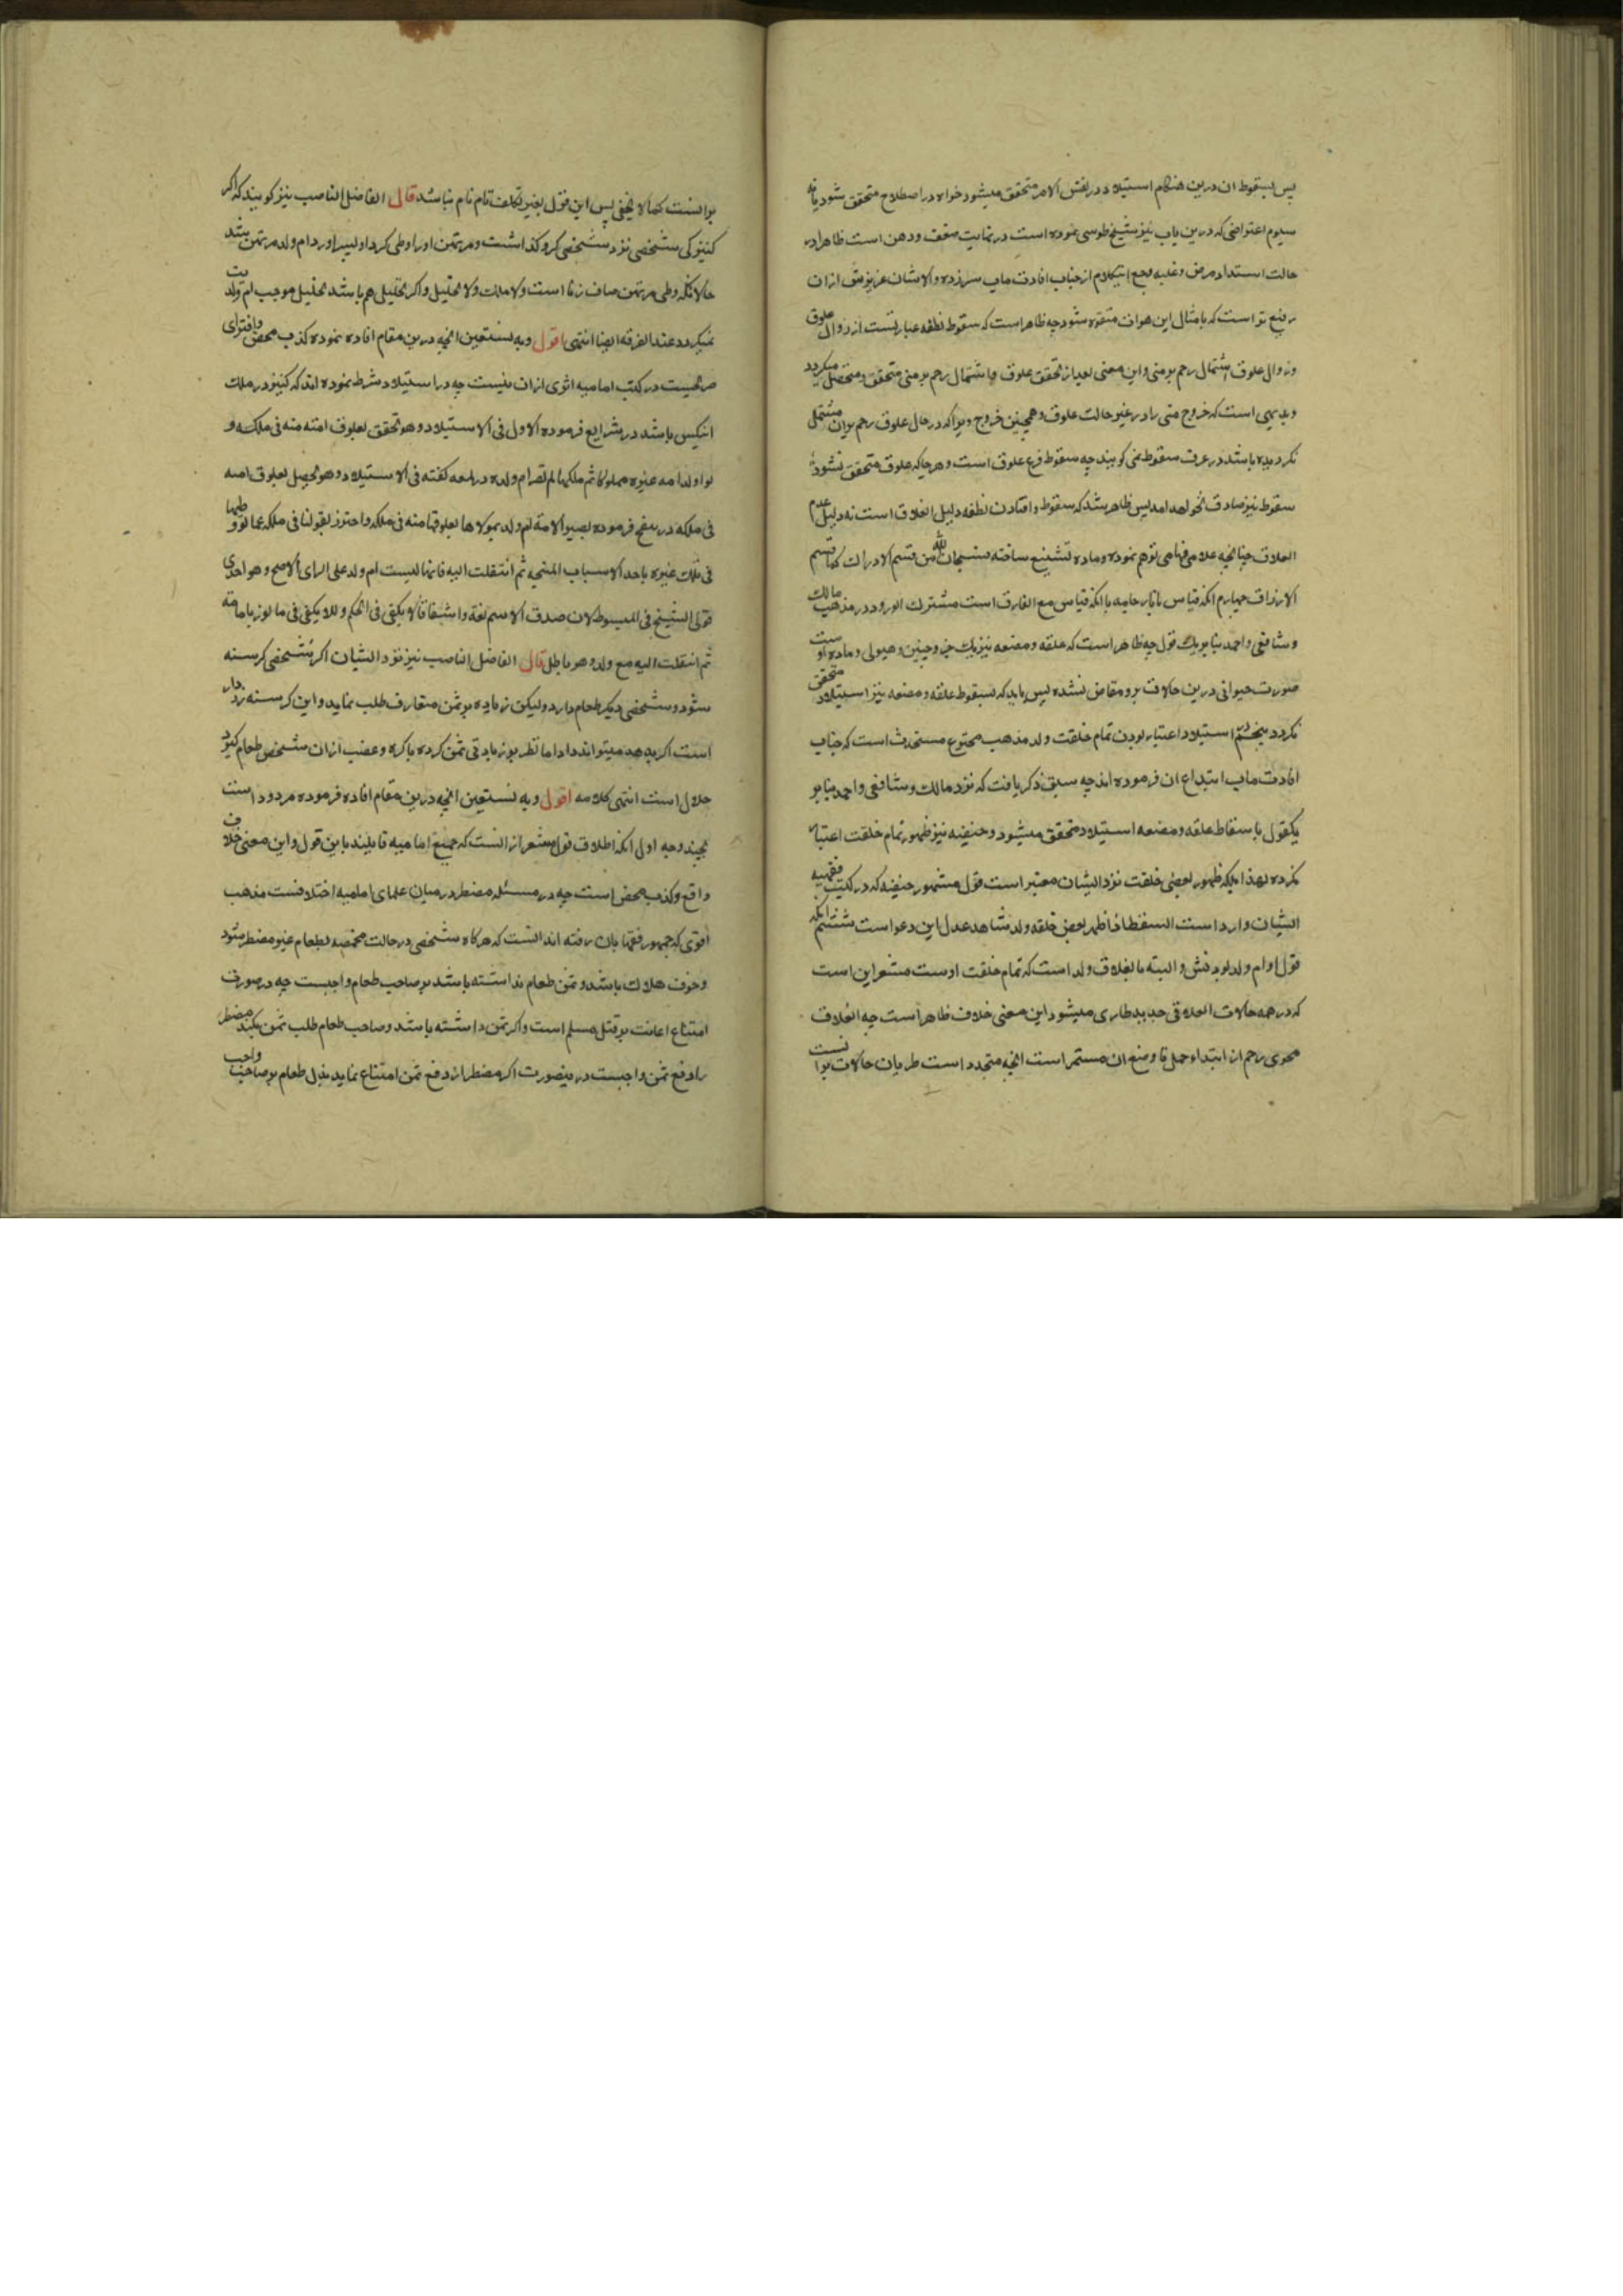 پس بسقوط ان درین هنکام استیلاد در نفس الامر متحقق میشود خواه در اصطلاح متحقق شود یا نه
سیوم اعتراضی که درین باب نیز شیخ طوسی نموده است در نهایت ضعف و وهن است ظاهرا در
حالت اشتداد مرض و غلبه وجع این کلام از جناب افادت ماب سر زده والا شان عزیزش ازان
رفیع تر است که بامثال این هوات متفوه شود چه ظاهر است که سقوط نطفه عبارتست از زوال علوق
و زوال علوق اشتمال رحم بر منی و این معنی بعد از تحقق علوق و اشتمال رحم بر منی متحقق و متحصل میکردد
و بدیهی است که خروج منی را در غیر حالت علوق و همچنین خروج ویرا که در حال علوق رحم بران مشتمل
نکردیده باشد در عرف سقوط نمی کویند چه سقوط فرع علوق است و هر جا که علوق متحقق نشود
سقوط نیز صادق نخواهد امد پس ظاهر شد که سقوط و افتادن نطفه دلیل انعلاق است نه دلیل عدم
انعلاق چنانچه علامی فهامی توهم نموده و ماده تشنیع ساخته فسبحان الله من قسم الادراک کما قسم
الارزاق چهارم انکه قیاس باثار حامیه با انکه قیاس مع الفارق است مشترک الورود در مذهب مالک
و شافعی و احمد بنا بر یک قول چه ظاهر است که علقه و مضغه نیز یک جزو جنین و هیولی و ماده اوست
صورت حیوانی درین حالات برو مفاض نشده پس باید که بسقوط علقه و مضغه نیز استیلاد متحقق
نکردد پنجم استیلاد اعتبار بودن تمام خلقت ولد مذهب مخترع مستحدث است که جناب
افادت ماب ابتداع ان فرموده اند چه سبق ذکر یافت که نزد مالک و شافعی و احمد بنا بر
یکقول باسقاط علقه و مضغه استیلاد متحقق میشود و حنفیه نیز ظهور تمام خلقت اعتبار
نکرده بهذا بلکه ظهور بعضی خلقت نزد ایشان معتبر است قول مشهور حنفیه که در کتب فقهیه
ایشان وارد است السقط اذا ظهر بعض خلقه ولد شاهد عدل این دعواست ششم انکه
قول او ام ولد بودنش و البته بانغلاق ولد است که تمام خلقت اوست مشعر این است
که در همه حالات العلاقی جدید طاری میشود این معنی خلاف ظاهر است چه انغلاق
محوی رحم از ابتداء حمل تا وضع ان مستمر است انچه متجدد است طریان حالات بر انست
بر انست کما لا یخفی پس این قول بغیر تکلف تام تام نباشد قال الفاضل الناصب نیز کویند که اکر
کنیزکی شخصی نزد شخصی کرو کذاشت و مرتهن او را وطی کرد او پسر اورد ام ولد مرتهن شد
حالانکه وطی مرتهن صاف زنا است ولا ملک ولا تحلیل و اکر تحلیل هم باشد تحلیل موجب ام ولدیت
نمیکردد عند الفرقه ایضا انتهی اقول و به نستعین انچه درین مقام افاده نموده کذب محض و افترای
صریحست در کتب امامیه اثری ازان نیست چه در استیلاد شرط نموده اند که کنیز در ملک
انکس باشد در شرایع فرموده الاول فی الاستیلاد و هو یتحقق بعلوق امته منه فی ملکه و
لو اولد امه غیره مملوکا ثم ملکها لم تصر ام ولده در لمعه کفته فی الاستیلاد و هو یحصل بعلوق امته
فی ملکه در سفح فرموده بصیر الامة ام ولد بمولاها بعلوقها منه فی ملکه و احترز بقولنا فی ملکه عما لو وطیها
فی ملک غیره باحد الاسباب المبیحه ثم انتقلت الیه فانها لیست ام ولد علی الرای الاصح و هو احدی
قولی الشیخ فی المبسوط لان صدق الاسم لغة و اشتقاقا لا یکفی فی الحکم و للا یکفی فی ما لو زنا بامة
ثم انتقلت الیه مع ولد و هو باطل قال الفاضل الناصب نیز نزد ایشان اکر شخصی کرسنه
شود و شخصی دیکر طعام دارد و لیکن زیاده بر ثمن متعارف طلب نماید و این کرسنه زردار
است اکر بدهد میتواند داد اما نظر بر زیادتی ثمن کرده باکراه و غضب ازان شخص طعام کیرد
حلال است انتهی کلامه اقول و به نستعین انچه درین مقام افاده فرموده مردود است
بچند وجه اول انکه اطلاق قول مشعر از انست که جمیع امامیه قایلند باین قول و این معنی خلاف
واقع و کذب محض است چه در مسئله مضطر در میان علمای امامیه اختلافست مذهب
اقوی که جمهور فقها بان رفته اند انست که هرکاه شخصی در حالت مخمصه بطعام غیر مضطر شود
و خوف هلاک باشد و ثمن طعام نداشته باشد بر صاحب طعام واجبست چه در صورت
امتناع اعانت بر قتل مسلم است و اکر ثمن داشته باشد و صاحب طعام طلب ثمن بکند مضطر
را دفع ثمن واجبست درینصورت اکر مضطر از دفع ثمن امتناع نماید بذل طعام بر صاحب واجب